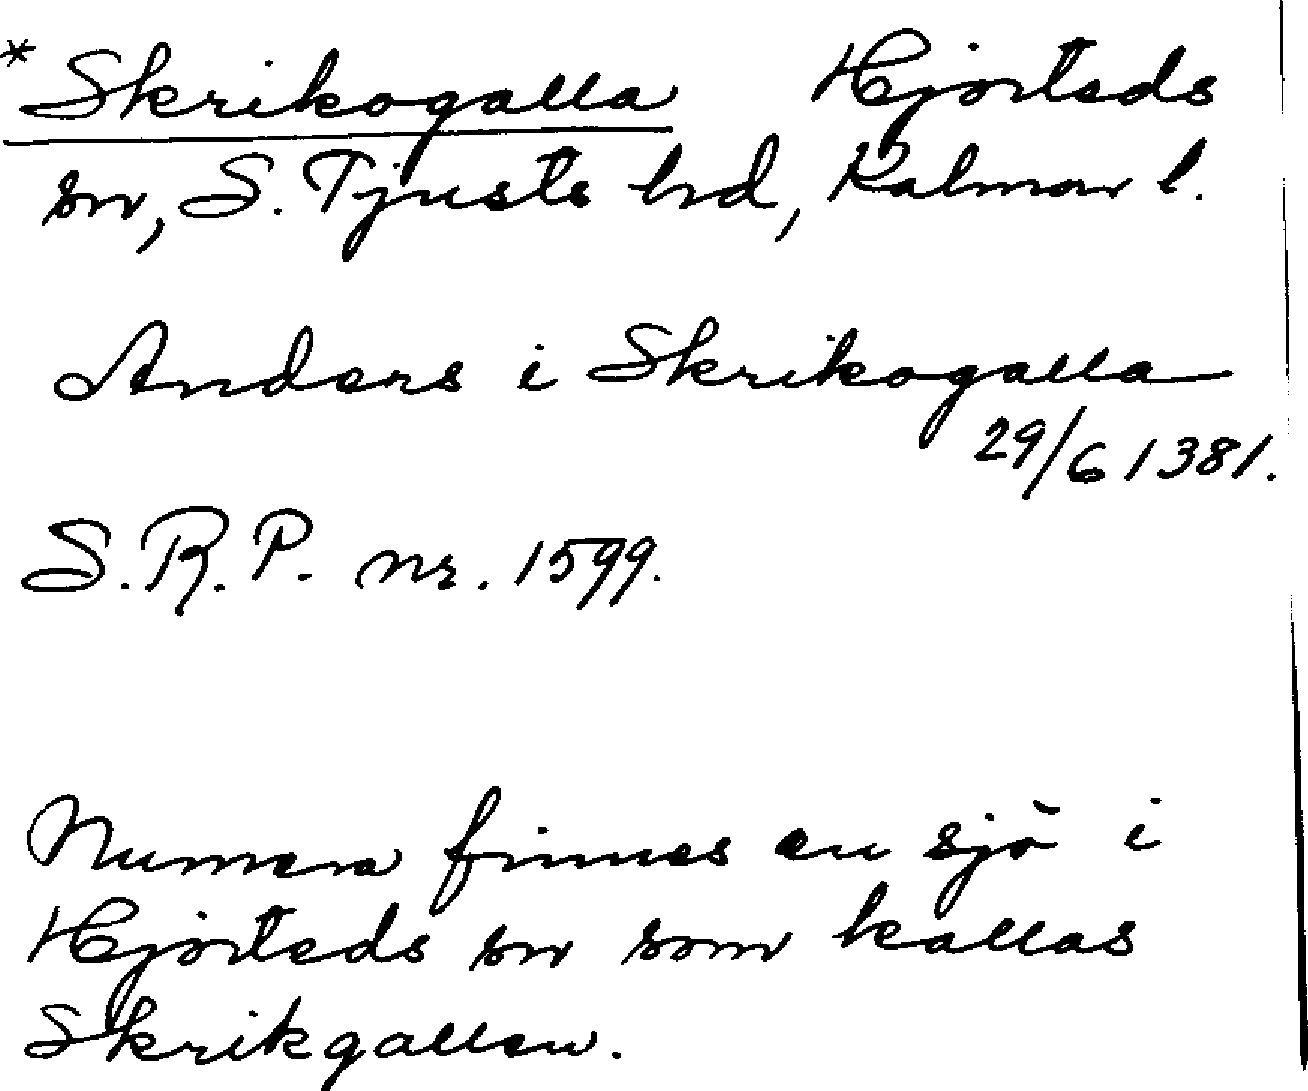 *Skrikogalla Hjorteds
sn, S. Tjusts hd, Kalmar l.
Anders i Skrikogalla
29/6 1381.
S.R.P. nr. 1599.
Numera finnes en sjö i
Hjorteds sn som kallas
Skrikgallen.